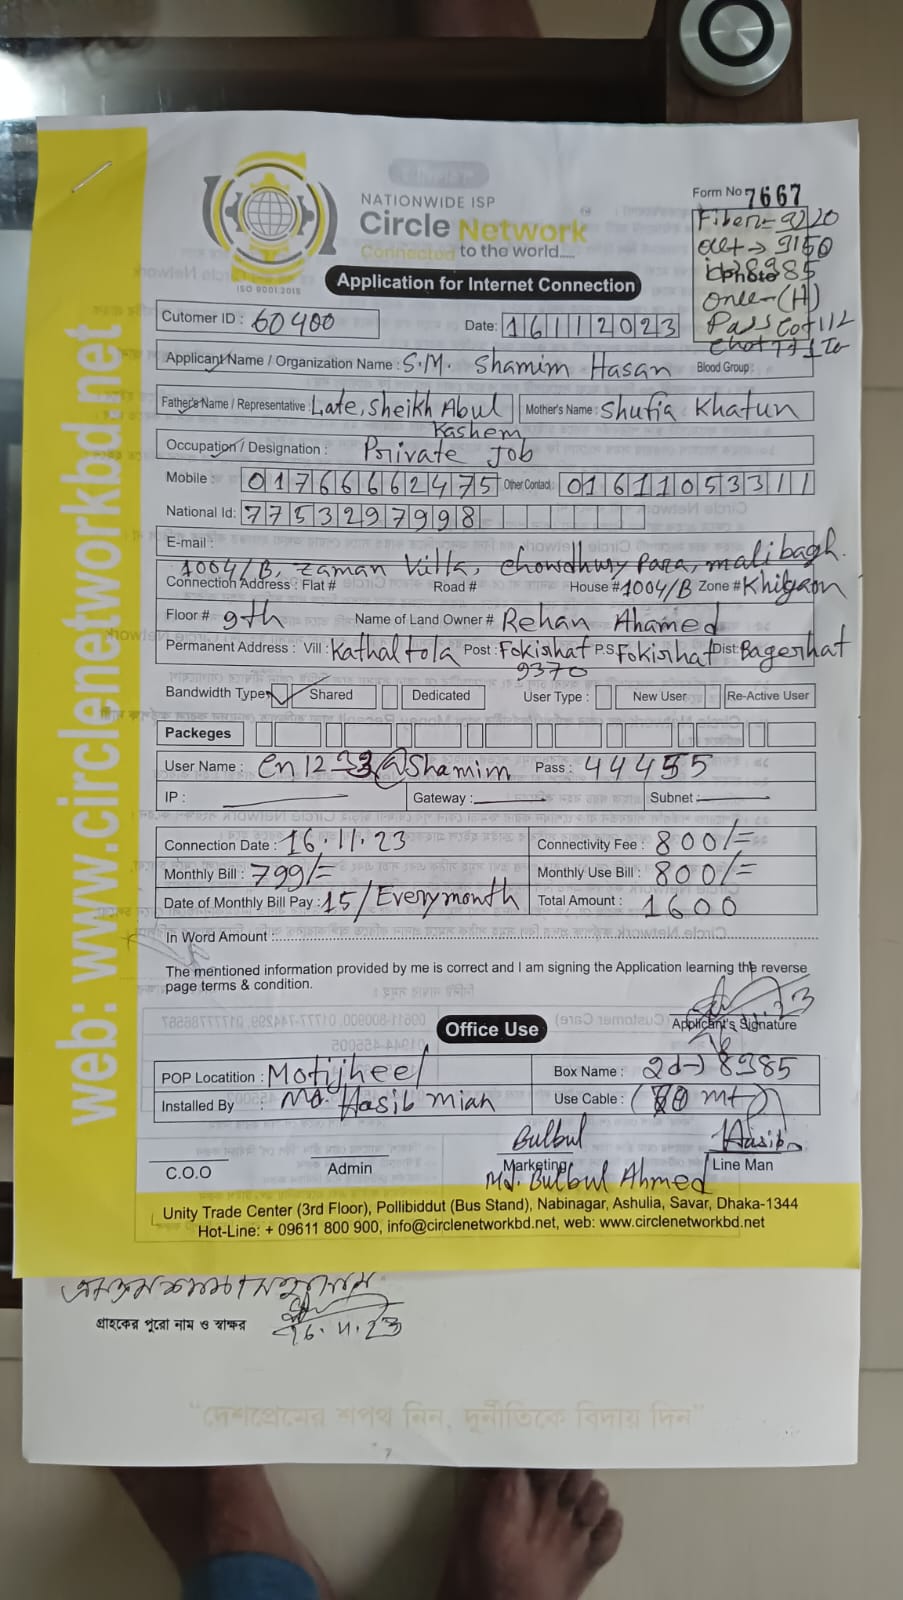 Form No 7667
NATIONWIDE ISP
Circle Network
Connected to the world.....
ISO 9001:2015
Fiber - 9220
9150
photo 8985
Once-(H)
Pass
Application for Internet Connection
Cutomer ID : 60400 Date: 16112023
Applicant Name / Organization Name : S.M. Shamim Hasan Blood Group :
Father's Name / Representative : Late, Sheikh Abul Kashem Mother's Name : Shufia Khatun
Occupation / Designation : Private Job
Mobile : 01766662475 Other Contact : 01611053311
National Id: 7753297998
E-mail :
1004/B, Zaman Villa, Chowdhury Para, malibagh.
Connection Address : Flat # Road # House # 1004/B Zone # Khilgaon
Floor # 9th Name of Land Owner # Rehan Ahamed
Permanent Address : Vill : Kathaltola Post : Fokirhat 9370 P.S Fokirhat Dist: Bagerhat
Bandwidth Type Shared Dedicated User Type : New User Re-Active User
Packeges
User Name : Shamim Pass : 44455
IP : Gateway : Subnet :
Connection Date : 16.11.23 Connectivity Fee : 800/=
Monthly Bill : 799/= Monthly Use Bill : 800/=
Date of Monthly Bill Pay : 15/Every month Total Amount : 1600
In Word Amount :
The mentioned information provided by me is correct and I am signing the Application learning the reverse
page terms & condition.
Applicant's Signature
Office Use
POP Locatition : Motijheel Box Name : 8985
Installed By : Md. Hasib miah Use Cable : mt)
Bulbul Hasib
C.O.O Admin Marketing Line Man
Md. Bulbul Ahmed
Unity Trade Center (3rd Floor), Pollibiddut (Bus Stand), Nabinagar, Ashulia, Savar, Dhaka-1344
Hot-Line: + 09611 800 900, info@circlenetworkbd.net, web: www.circlenetworkbd.net
web: www.circlenetworkbd.net
গ্রাহকের পুরো নাম ও স্বাক্ষর
16.11.23
“দেশপ্রেমের শপথ নিন, দুর্নীতিকে বিদায় দিন”